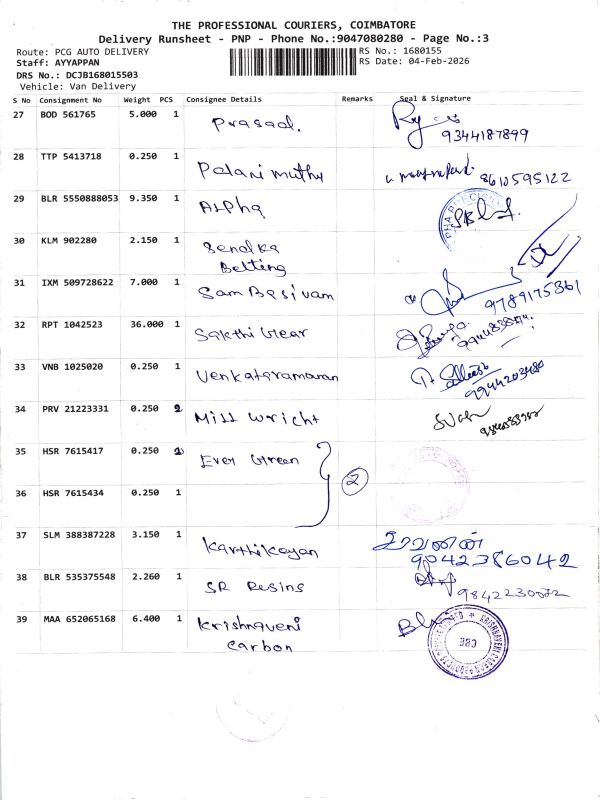 THE PROFESSIONAL COURIERS, COIMBATORE
Delivery Runsheet - PNP - Phone No.:9047080280 - Page No.:3
Route: PCG AUTO DELIVERY
RS No.: 1680155
Staff: AYYAPPAN
RS Date: 04-Feb-2026
DRS No.: DCJB168015503
Vehicle: Van Delivery
S No Consignment No Weight PCS Consignee Details Remarks Seal & Signature
27 BOD 561765 5.000 1 Prasad.
9344187899
28 TTP 5413718 0.250 1 Palani muthu
8610595122
29 BLR 5550888053 9.350 1 Alpha
30 KLM 902280 2.150 1 Senalka
Belting
31 IXM 509728622 7.000 1 Sam Basivam
9789175361
32 RPT 1042523 36.000 1 Sakthi Gear
33 VNB 1025020 0.250 1 Venkataramanan
9944203480
34 PRV 21223331 0.250 2 Mill wright
35 HSR 7615417 0.250 1 Ever Green
2
36 HSR 7615434 0.250 1
37 SLM 388387228 3.150 1 Karthikeyan சரவணன்
9042386042
38 BLR 535375548 2.260 1 SR Resins
9842230072
39 MAA 652065168 6.400 1 Krishnaveni
Carbon
CBE